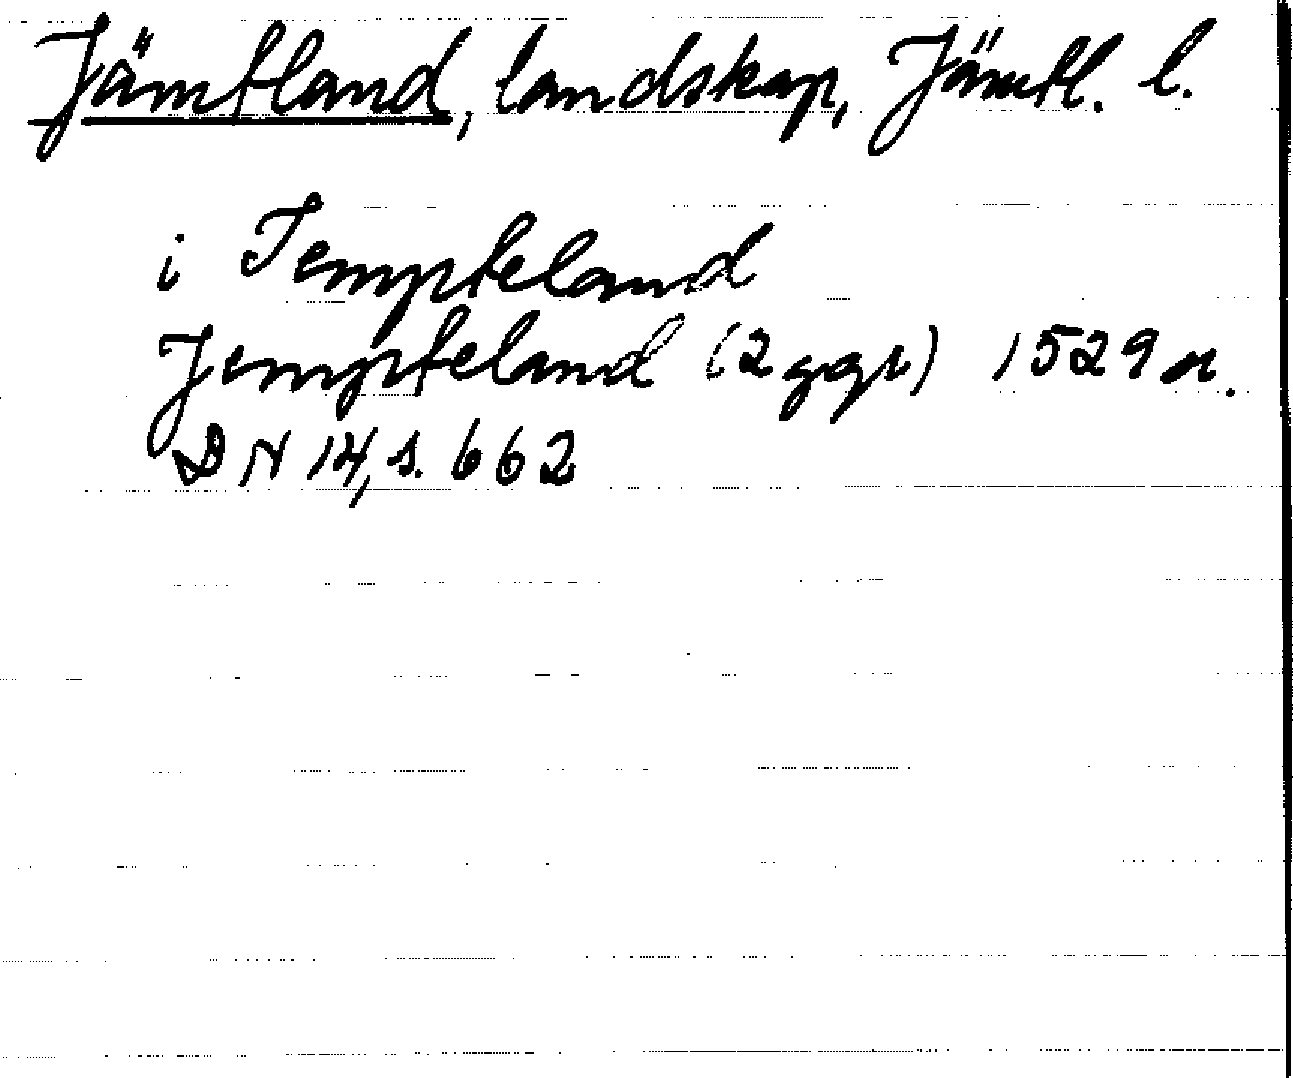 Jämtland, landskap, Jämtl. l.
i Iempteland
Jempteland (2 ggr) 1529 n.
DN 14, s. 662